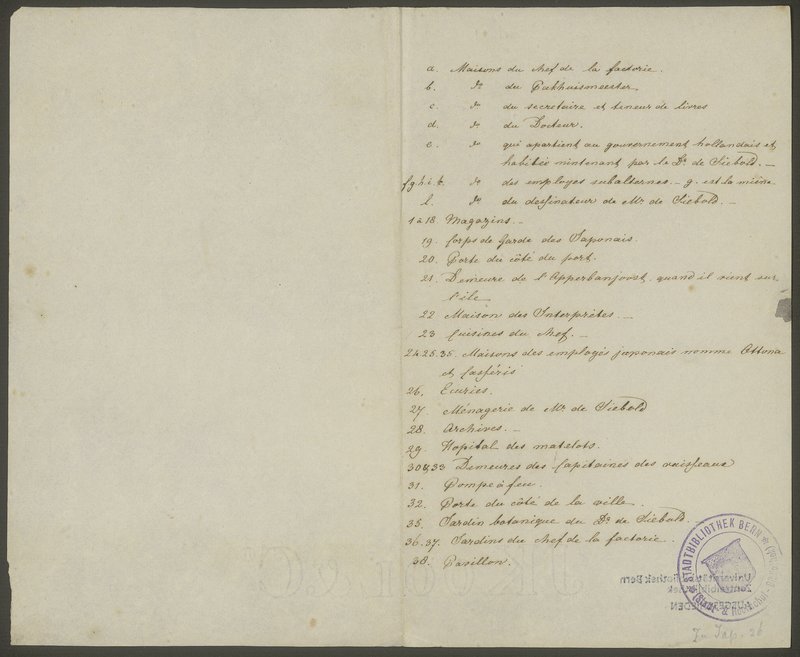 a. Maisons du chef de la factorie.
b. do du Pakhuismeester.
c. do du secretaire et teneur de livres
d. do du Docteur.
e. do qui apartient au gouvernement hollandais et
habitée mintenant par le Dr. de Siebold. —
f.g.h.i.k. do des employes subalternes. — g. est la miéne
l. do du dessinateur de Mr de Siebold. —
1 à 18. Magazins. —
19. Corps de Garde des Japonais.
20. Porte du côté du port.
21. Demeure de l'Apperbanjoost, quand il vient sur
l'ile
22 Maison des Interprètes. —
23 Cuisines du chef. —
24.25.35. Maisons des employés japonais nomme Ottona
et Casféris
26. Ecuries.
27. Ménagerie de Mr de Siebold
28. Archives. —
29. Hopital des matelots.
30 & 33 Demeures des Capitaines des vaisseaux
31. Pompe à feu.
32. Porte du côté de la ville.
35. Jardin botanique du Dr. de Siebold.
36.37. Jardins du chef de la factorie.
38. Pavillon.
STADTBIBLIOTHEK BERN
(Stadt- & Hochschul-
Universitätsbibliothek Bern
Zentralbibliothek
AUSGESCHIEDEN
Zu Jap. 26